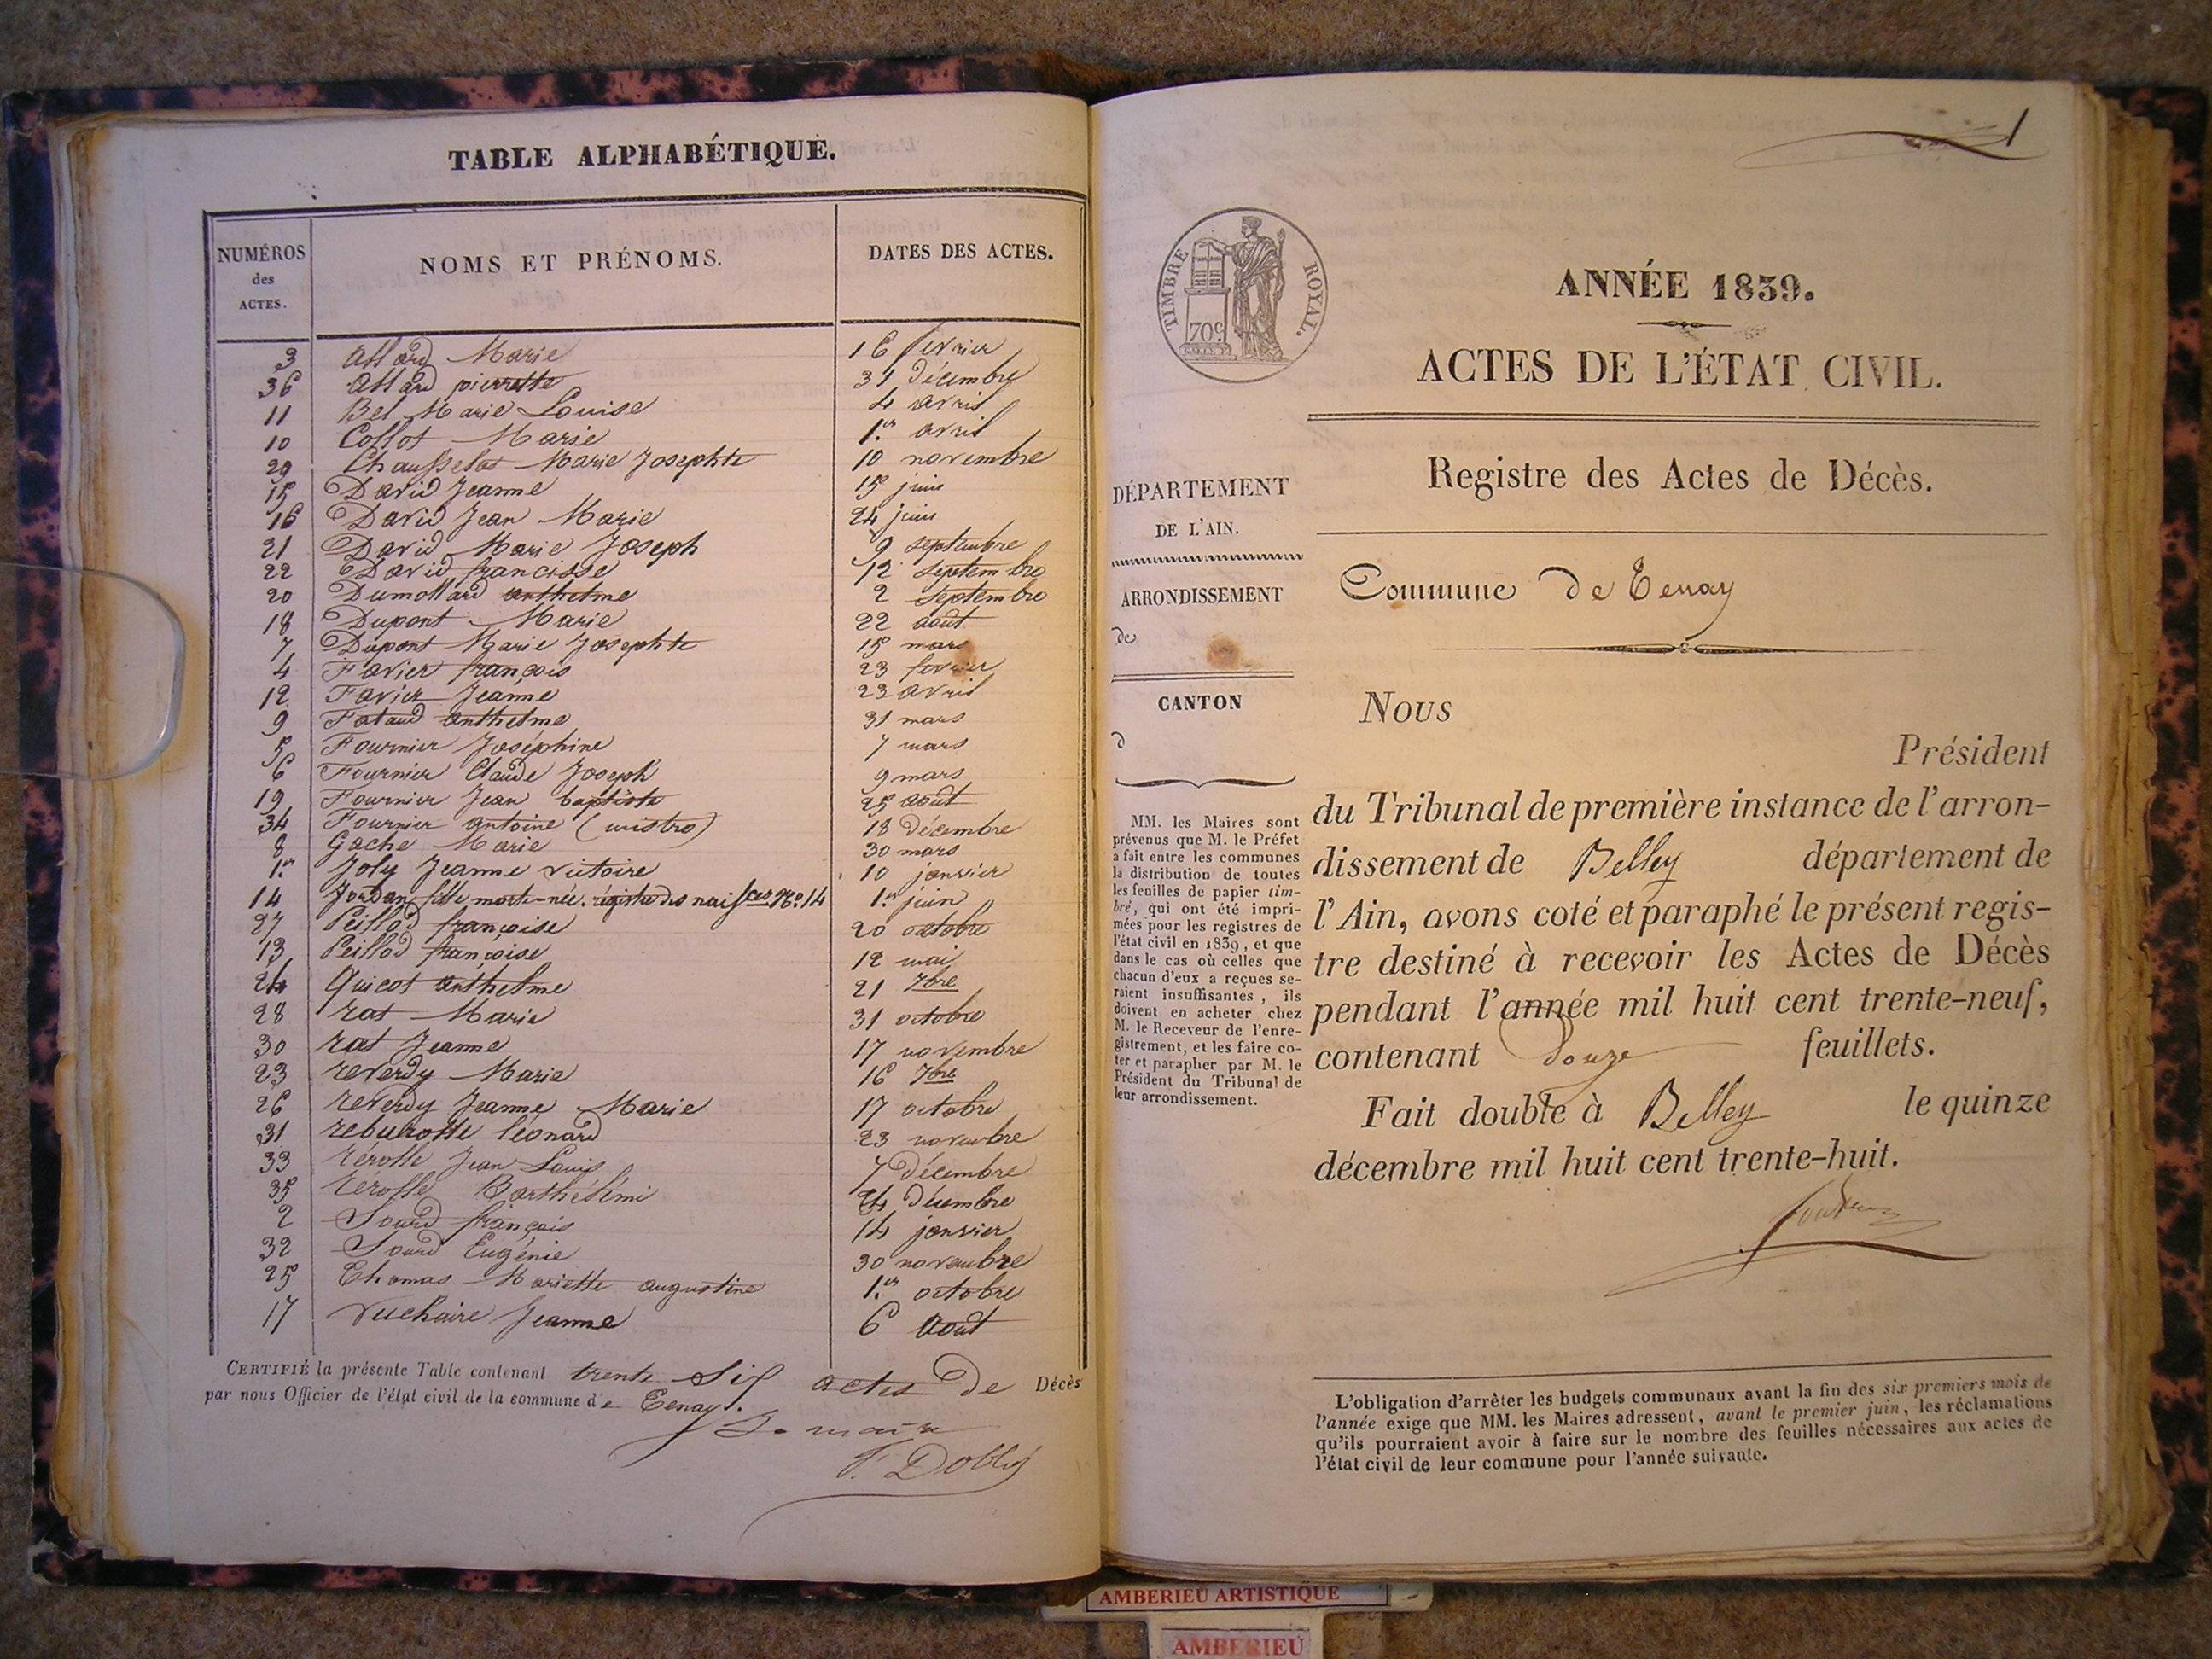 TABLE ALPHABÉTIQUE.
NUMÉROS des ACTES.
NOMS ET PRÉNOMS.
DATES DES ACTES.
3 Allard Marie 16 fevrier
36 Allard pierrette 31 Décembre
11 Bel Marie Louise 4 avril
10 Collot Marie 1.er avril
29 Chausselat Marie Josephte 10 novembre
15 David Jeanne 15 juin
16 David Jean Marie 24 juin
21 David Marie Joseph 9 septembre
22 David francisse 12 septembre
20 Dumollard anthelme 2 septembre
18 Dupont Marie 22 août
7 Dupont Marie Josephte 15 mars
4 Favier françois 23 fevrier
12 Favier Jeanne 23 avril
9 Fataud anthelme 31 mars
5 Fournier Joséphine 7 mars
6 Fournier Claude Joseph 9 mars
19 Fournier Jean baptiste 25 août
34 Fournier antoine (mistro) 18 Décembre
8 Gache Marie 30 mars
1.er Joly Jeanne victoire 10 janvier
14 Jordan fille morte-née. régistre des naissces No. 14 1.er juin
27 Peillod françoise 20 octobre
13 Peillod françoise 12 mai
24 Quicot anthelme 21 7bre
28 rat Marie 31 octobre
30 rat Jeanne 17 novembre
23 reverdy Marie 16 7bre
26 reverdy Jeanne Marie 17 octobre
31 léonard 23 novembre
33 rérolle Jean Louis 7 Décembre
35 rerolle Barthélémi 24 Décembre
2 Sourd françois 14 janvier
32 Sourd Eugénie 30 novembre
25 Thomas Mariette augustine 1.er octobre
17 vuchaire Jeanne 6 août
CERTIFIÉ la présente Table contenant trente Six actes de Décès
par nous Officier de l'état civil de la commune de Tenay.
Le maire
1
TIMBRE ROYAL.
70c
ANNÉE 1839.
ACTES DE L'ÉTAT CIVIL.
Registre des Actes de Décès.
DÉPARTEMENT
DE L'AIN.
ARRONDISSEMENT
de
CANTON
d
MM. les Maires sont
prévenus que M. le Préfet
a fait entre les communes
la distribution de toutes
les feuilles de papier tim-
bré, qui ont été impri-
mées pour les registres de
l'état civil en 1839, et que
dans le cas où celles que
chacun d'eux a reçues se-
raient insuffisantes, ils
doivent en acheter chez
M. le Receveur de l'enre-
gistrement, et les faire co-
ter et parapher par M. le
Président du Tribunal de
leur arrondissement.
Commune de Tenay
Nous
Président
du Tribunal de première instance de l'arron-
dissement de Belley département de
l'Ain, avons coté et paraphé le présent regis-
tre destiné à recevoir les Actes de Décès
pendant l'année mil huit cent trente-neuf,
contenant douze feuillets.
Fait double à Belley le quinze
décembre mil huit cent trente-huit.
L'obligation d'arrêter les budgets communaux avant la fin des six premiers mois de
l'année exige que MM. les Maires adressent, avant le premier juin, les réclamations
qu'ils pourraient avoir à faire sur le nombre des feuilles nécessaires aux actes de
l'état civil de leur commune pour l'année suivante.
AMBERIEU ARTISTIQUE
AMBERIEU